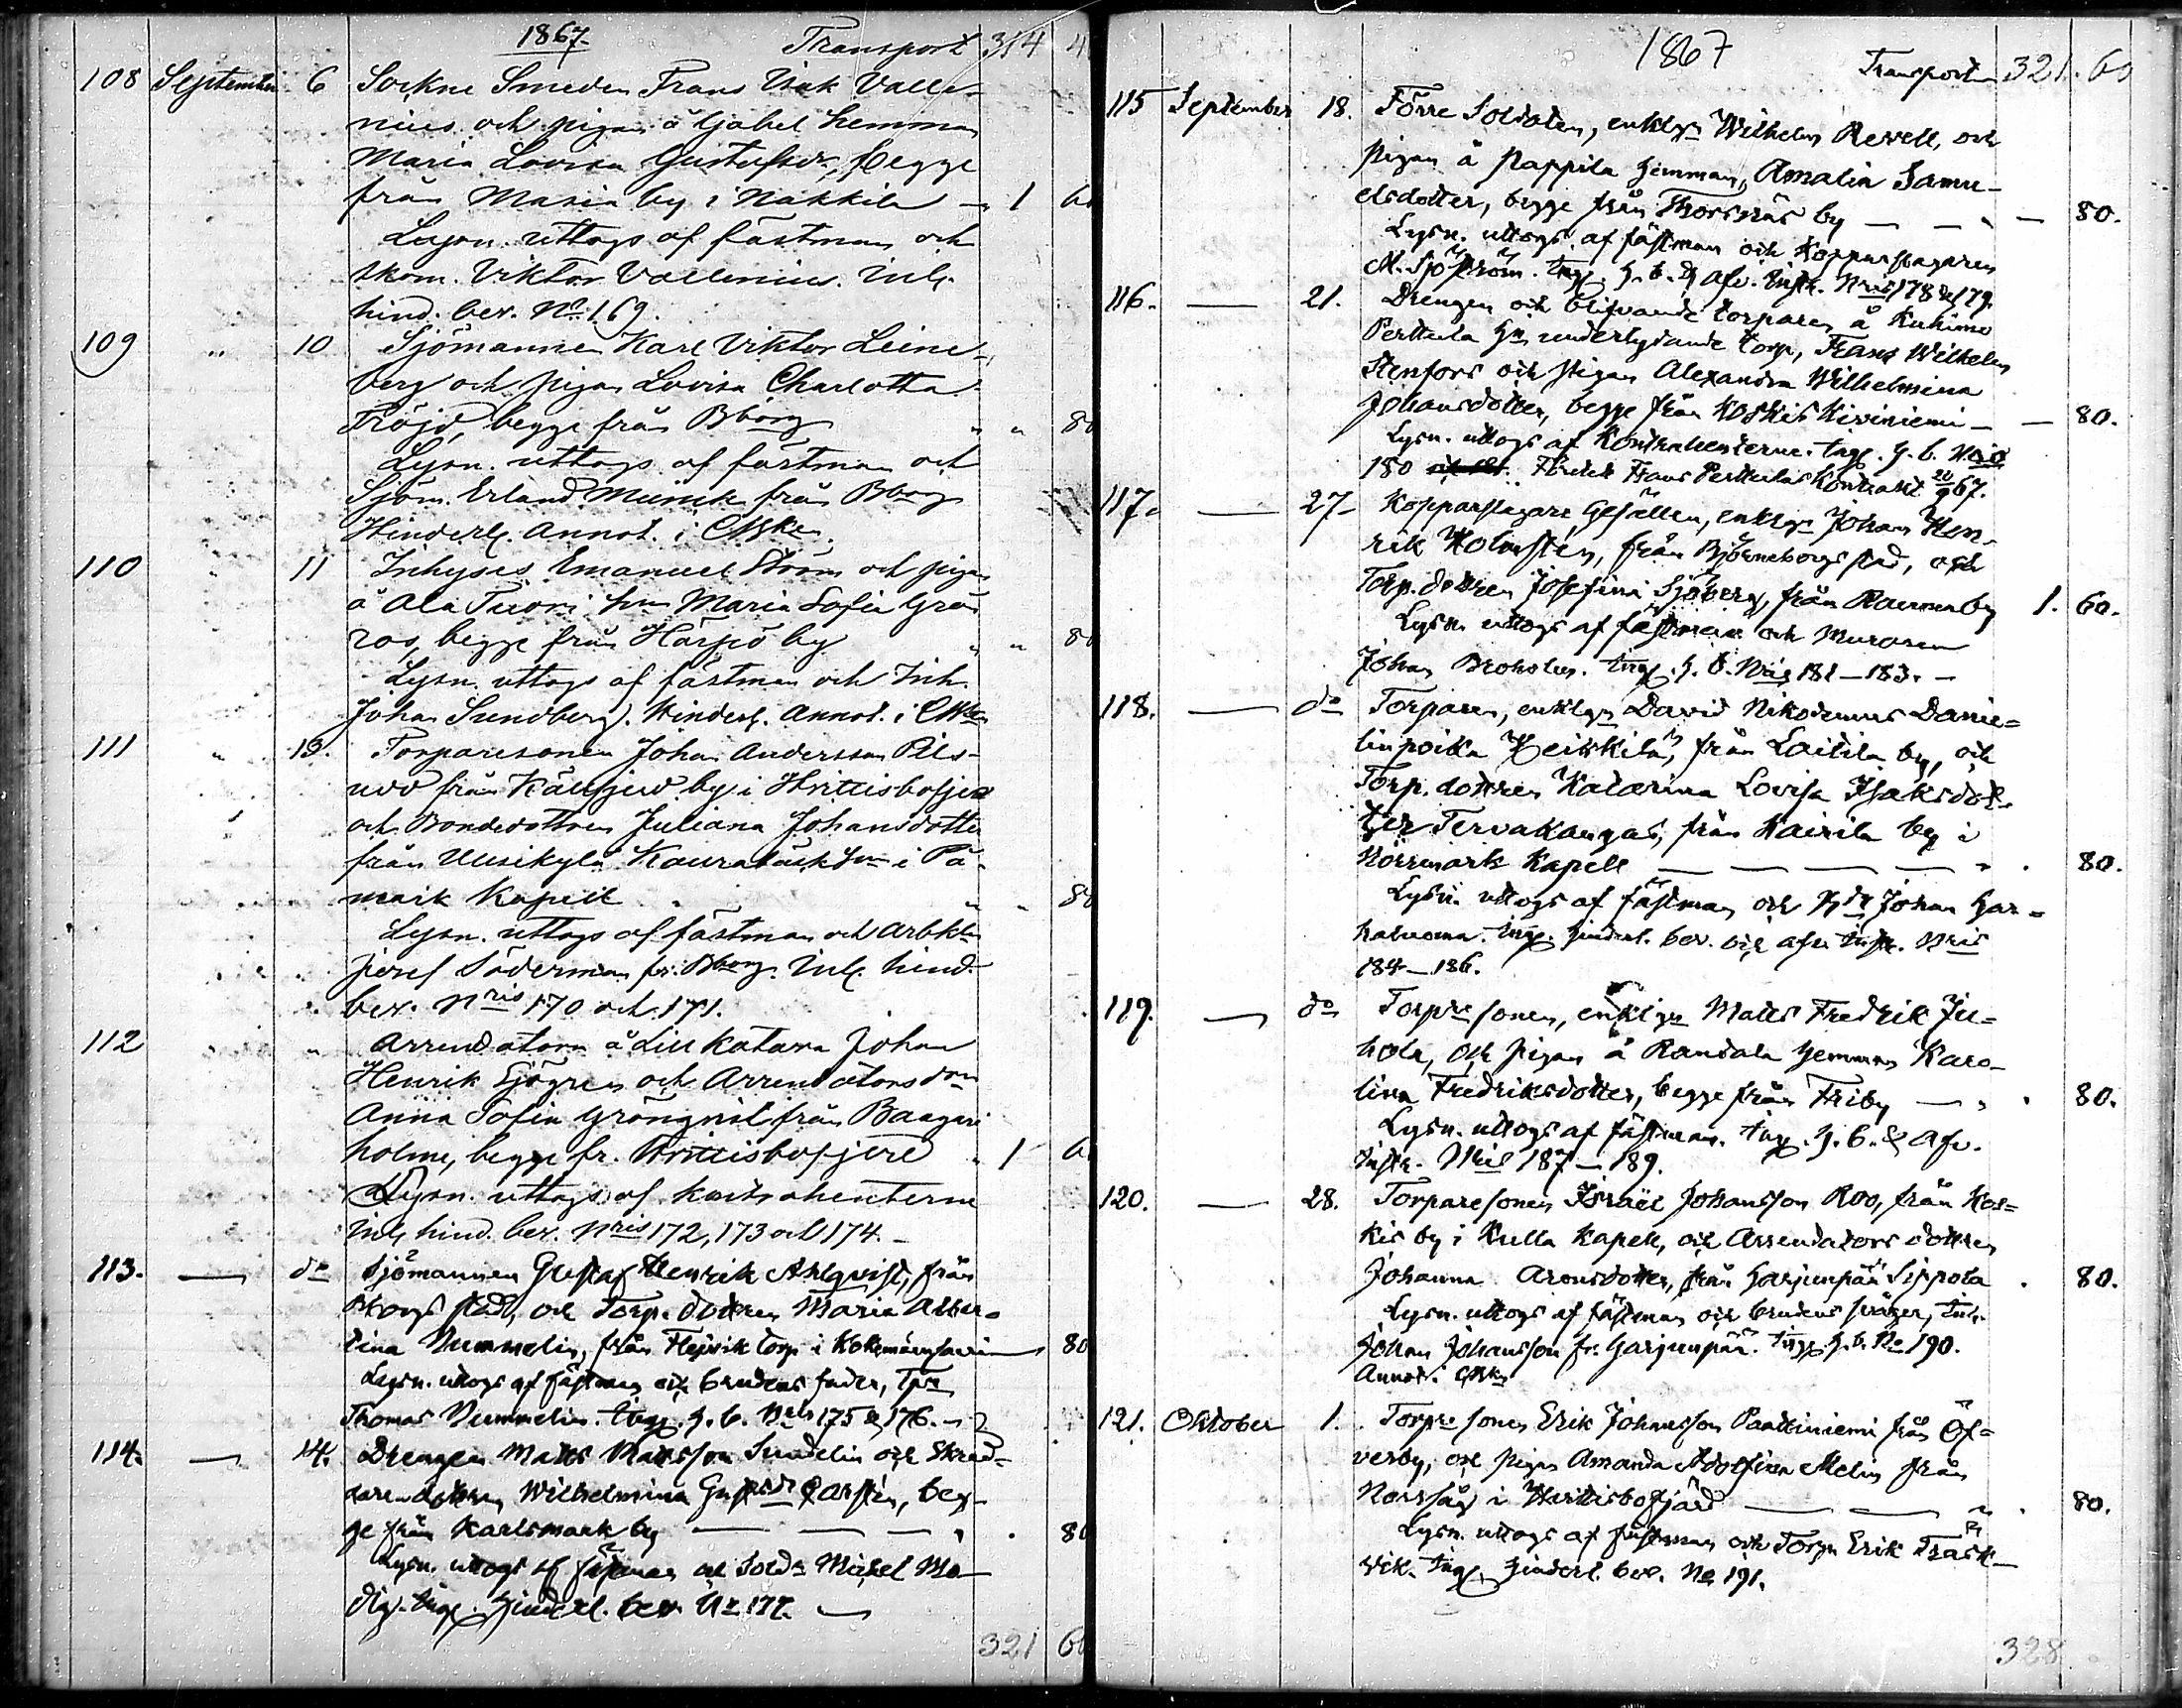 1867. Transport 314 4
108 September 6 Sockne Smeden Frans Isak Valle-
nius och pigan å Gjabel hemman
Maria Lovisa Gustafsdr, begge
från Masia by i Nakkila 1 60
Lysn. uttogs af fästman och
skom. Viktor Vallenius. Inl.
hind. bev. No 169.
109 " 10 Sjömannen Karl Viktor Leine-
berg och pigan Lovisa Charlotta
Fröjd, begge från Bborg " " 80
Lysn. uttogs af fästman och
Sjöm. Erland Munck från Bborg
Hinderl. annot. i CBken
110 " 11 Inhyses Emanuel Ström och pigan
å Ala Tuori hmn Maria Sofia Grön
ros, begge från Härpö by " " 80
Lysn. uttogs af fästman och Inh.
Johan Sundberg. Hinderl. annot. i CBken
111 " 13. Torparesonen Johan Andersson Pils-
och Bondedottren Juliana Johansdotter
från Uusikylä i På-
mark Kapell " " 80
Lysn. uttogs af fästman och Arbkn
Josef Söderman fr. Bborg. Inl. hind.
bev. Nris 170 och 171.
112 " Arrendatorn å Liukatara Johan
Henrik Sjögren och Arrendatorsdn
Anna Sofia Grönqvist från Baageri
holme, begge fr. Hvittisbofjerd " 1 60
Lysn. uttogs af kontrahenterne
Inl. hind. bev. Nris 172, 173 och 174.
113. — do Sjömannen Gustaf Henrik Ahlqvist, från
Bborgs stad, och Torp. dottren Maria Alber-
tina Nummelin, från torp i Kokemäensaari 80
Lysn. uttogs af fästman och brudens fader, Tprn
Thomas Nummelin. Ingj. h. b. Nris 175 & 176.
114. — 14. Drengen Matts Mattsson Sundelin och Skräd-
daredottren Wilhelmina Gustfsdr Carstén, beg-
ge från Karlsmark by — — — " . 80
Lysn. uttogs af fästman och Sold: Mickel Mo-
dig. Ingj. hinderl. bev. No 177.
321 60
1867 Transporten 321. 60
115 September 18. Förre Soldaten, enklgn Wilhelm Revell, och
pigan å Pappila hemman, Amalia Samu-
elsdotter, begge från Thorsnäs by — — — 80.
Lysn. uttogs af fästman och Kopparslagaren
M. Sjöström. Ingj. h. b. & afv. Instr. Nris 178 & 179.
116. — 21. Drengen och blifvande torparen å Kuhimo
Perttula hn underlydande torp, Frans Wilhelm
Stenfors och pigan Alexandra Wilhelmina
Johansdotter, begge från Koskis Kiviniemi — — 80.
Lysn. uttogs af Kontrahenterne. Ingj. h. b. No
180 Frans Perttulas Kontrakt 20/9 67.
117. — 27. Kopparslagare Gesällen, enklgn Johan Hen-
rik Holmstén, från Björneborgs stad, och
Torp. dottren Josefina Sjöberg, från Raumaby 1. 60.
Lysn. uttogs af fästman och Muraren
Johan Broholm. Ingj. h. b. Nris 181 — 183.
118. — do Torparen, enklgn David Nikodemus Danie-
linpoika Heikkilä, från Laitila by, och
Torp. dottren Katarina Lovisa Isaksdot-
ter Tervakangas, från Kairila by i
Norrmark Kapell — — — — " . 80.
Lysn. uttogs af fästman och Johan Har-
haluoma. Ingj. hinderl. bev. och afv. Instr. Nris
184 — 186.
119. — do Torpresonen, enklgn Matts Fredrik Ju-
hola, och pigan å Randala hemman Karo-
lina Fredriksdotter, begge från Friby — " . 80.
Lysn. uttogs af fästman. Ingj. h. b. & afv.
Instr. Nris 187 — 189.
120. — 28. Torparesonen Israël Johansson Roo, från Kos-
kis by i Kulla Kapell, och Arrendators dottren
Johanna Aronsdotter, från Harjunpää Sippola . 80.
Lysn. uttogs af fästman och brudens svåger, Inh.
Johan Johansson fr. Harjunpää. Ingj. h. b. No 190.
Annot. i CBkn
121. Oktober 1. Torpresonen Erik Johansson Paatiniemi från Öf-
verby, och pigan Amanda Adolfina Melin från
i Hvittisbofjärd — — " . 80.
Lysn. uttogs af fästman och Torpn Erik Träsk-
vik. Ingj. hinderl. bev. No 191.
328